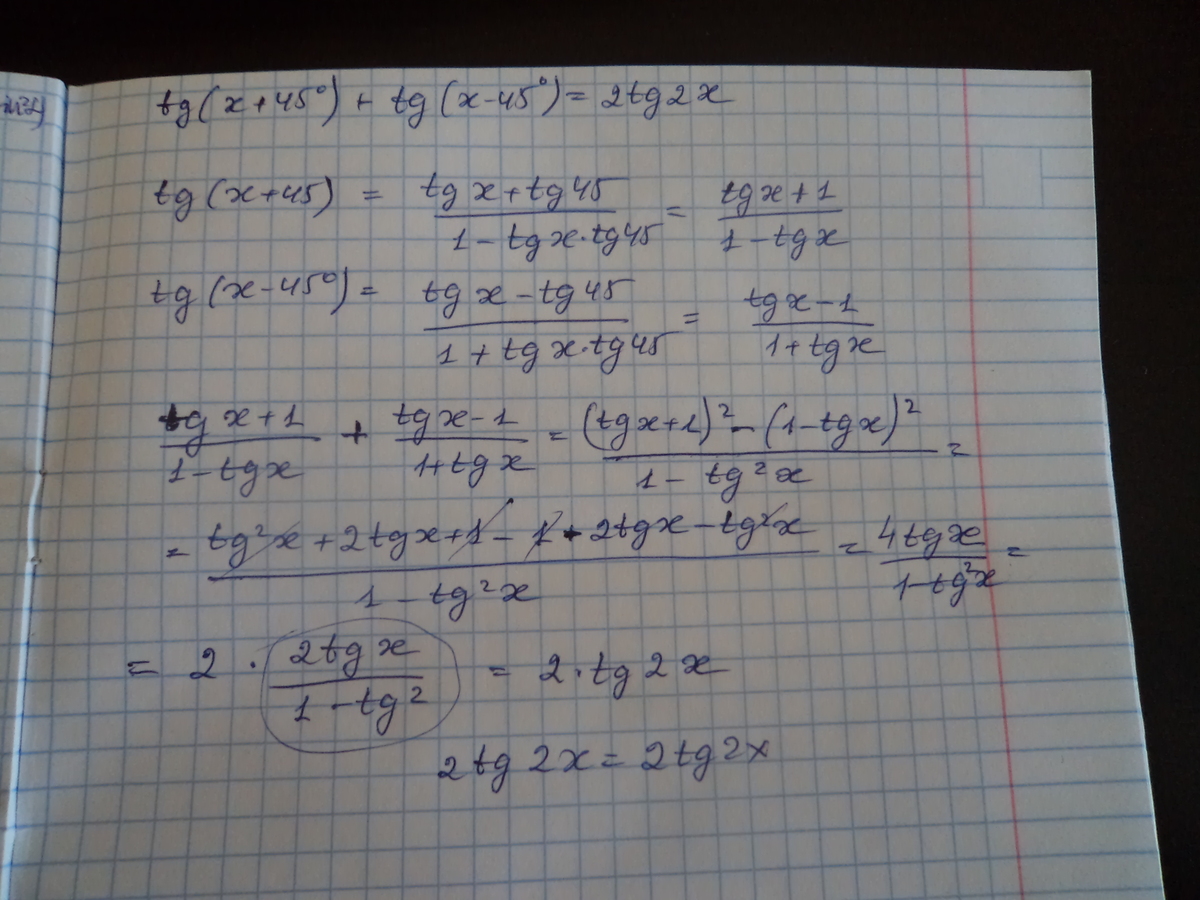 tg(x+45°) + tg(x-45°) = 2tg2x
tg(x+45) = (tgx+tg45)/(1-tgx·tg45) = (tgx+1)/(1-tgx)
tg(x-45°) = (tgx-tg45)/(1+tgx·tg45) = (tgx-1)/(1+tgx)
(tgx+1)/(1-tgx) + (tgx-1)/(1+tgx) = ((tgx+1)²-(1-tgx)²)/(1-tg²x) =
= (tg²x+2tgx+1-1+2tgx-tg²x)/(1-tg²x) = 4tgx/(1-tg²x) =
= 2 · 2tgx/(1-tg²) = 2·tg2x
2tg2x = 2tg2x